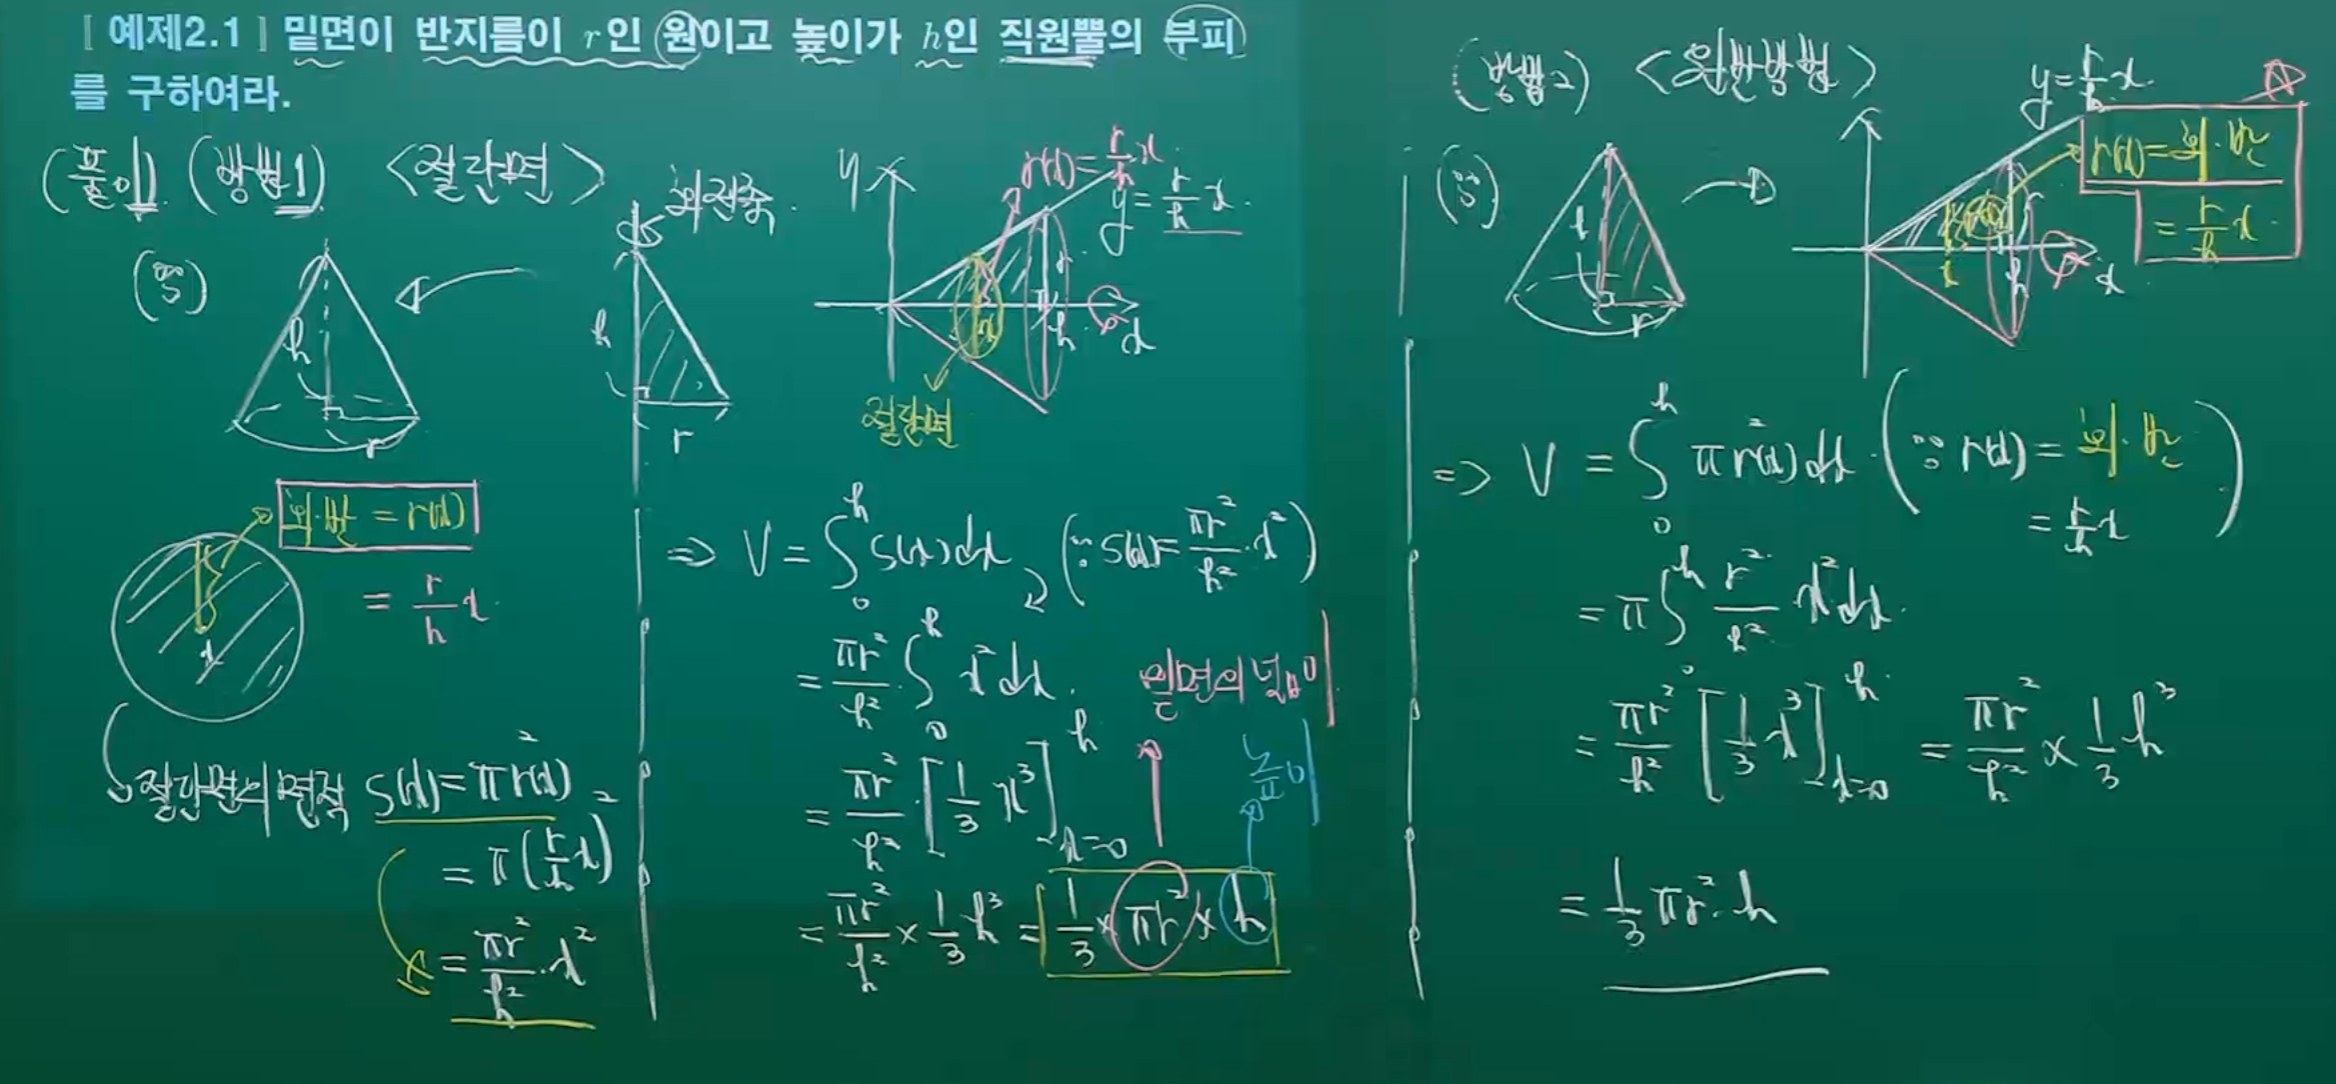 [ 예제2.1 ] 밑면이 반지름이 r인 원이고 높이가 h인 직원뿔의 부피
를 구하여라.
(풀이) (방법1) <절단면>
(∵)
h
r
회전축
h
r
y
r(x) = r/h x
y = r/h x
r
x
h
x
절단면
회·반 = r(x)
= r/h x
x
절단면의 면적 S(x) = πr²(x)
= π(r/h x)²
= πr²/h² · x²
⇒ V = ∫₀ʰ S(x)dx (∵ S(x) = πr²/h² · x²)
= πr²/h² · ∫₀ʰ x² dx
= πr²/h² · [1/3 x³]ʰₓ₌₀
밑면의 넓이
높이
= πr²/h² × 1/3 h³ = 1/3 × πr² × h
(방법2) <원반방법>
(∵)
r
y = r/h x
r(x) = 회·반
= r/h x
r
x
h
x
⇒ V = ∫₀ʰ πr²(x)dx (∵ r(x) = 회·반
= r/h x)
= π∫₀ʰ r²/h² x² dx
= πr²/h² [1/3 x³]ʰₓ₌₀ = πr²/h² × 1/3 h³
= 1/3 πr² · h